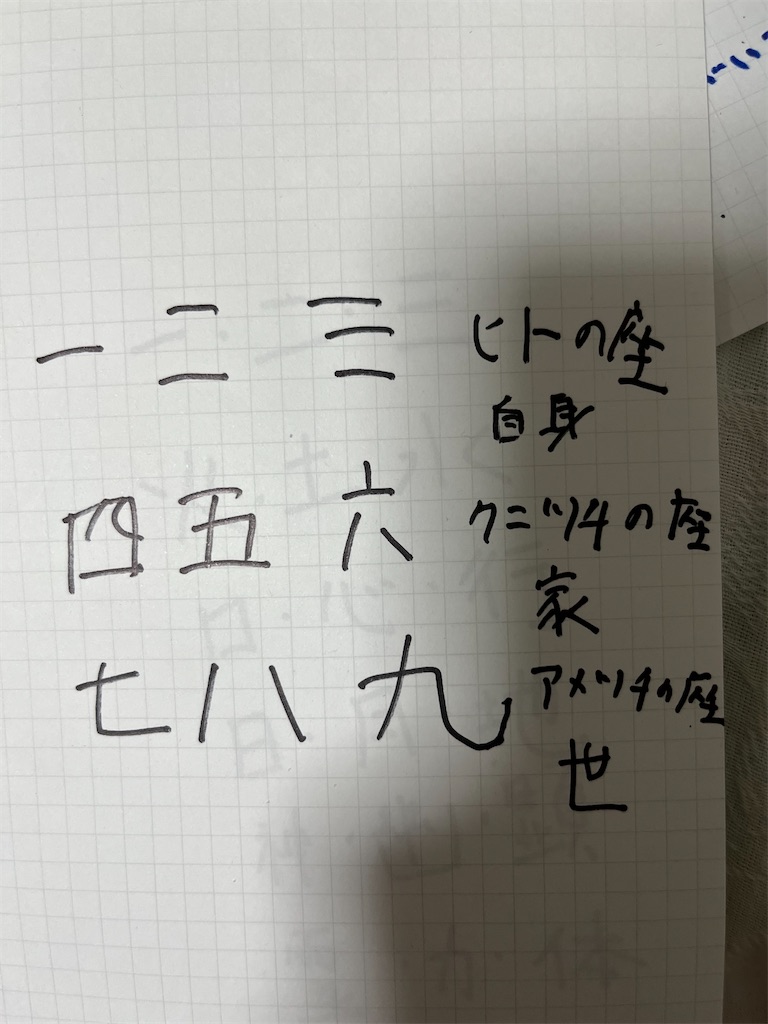 一 二 三 ヒトの座
自身
四 五 六 クニツチの座
家
七 八 九 アメツチの座
世